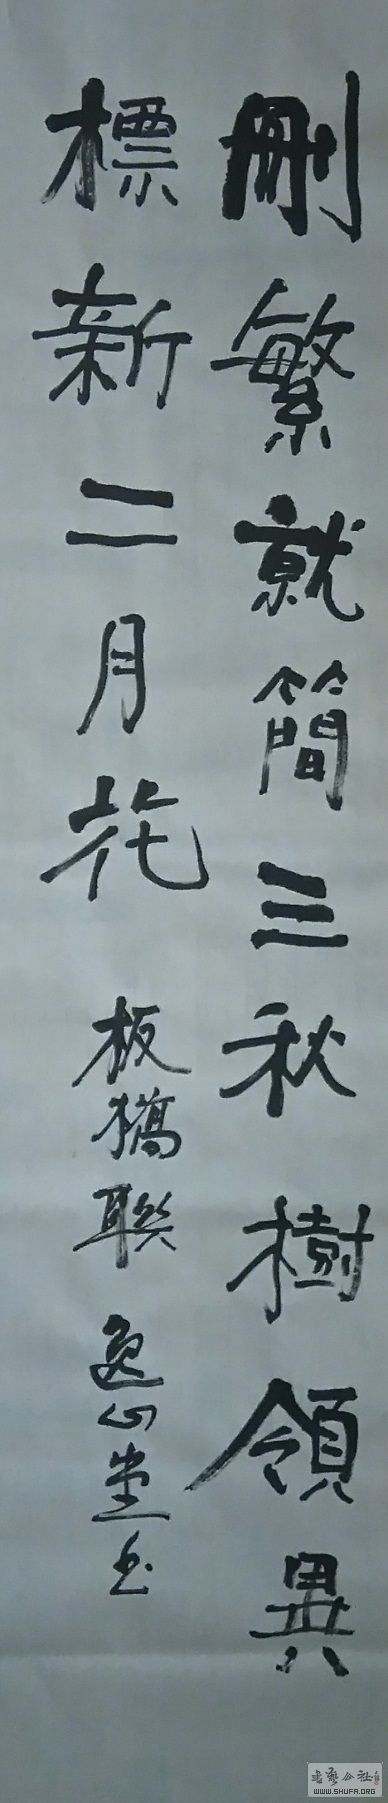 刪繁就簡三秋樹領異
標新二月花
板橋聯 逸心堂書
書藝公社
WWW.SHUFA.ORG